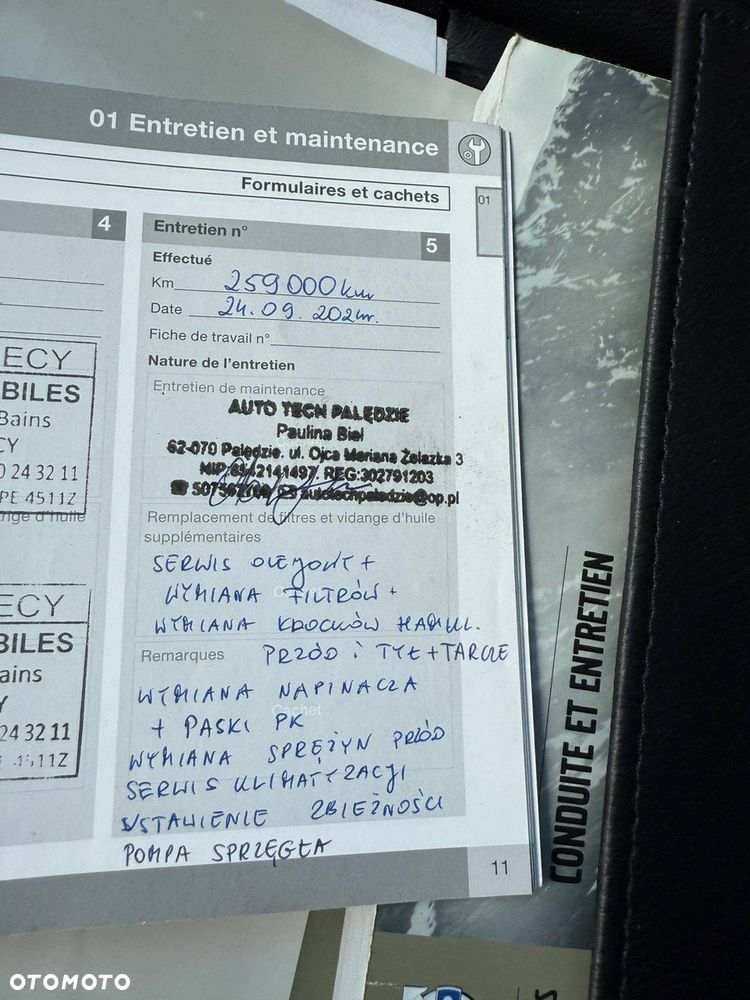 01 Entretien et maintenance
Formulaires et cachets
01
4
ECY
BILES
Bains
CY
0 24 32 11
PE 4511Z
nge d'huile
ECY
BILES
ains
Y
24 32 11
11Z
Entretien n°
5
Effectué
Km 259000km
Date 24.09.2024r.
Fiche de travail n°
Nature de l'entretien
Entretien de maintenance
AUTO TECH PALĘDZIE
Paulina Biel
62-070 Palędzie. ul. Ojca Mariana Żelazka 3
REG:302791203
autotechpaledzie@op.pl
Remplacement de filtres et vidange d'huile
supplémentaires
SERWIS OLEJOWY +
WYMIANA FILTRÓW +
WYMIANA KLOCKÓW HAMUL.
Remarques PRZÓD i TYŁ + TARCZE
WYMIANA NAPINACZA
Cachet
+ PASKI PK
WYMIANA SPRĘŻYN PRZÓD
SERWIS KLIMATYZACJI
USTAWIENIE ZBIEŻNOŚCI
POMPA SPRZĘGŁA
11
CONDUITE ET ENTRETIEN
OTOMOTO